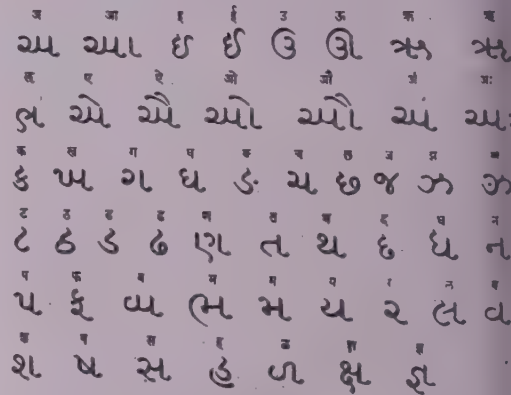 अ आ इ ई उ ऊ ऋ ॠ
અ આ ઇ ઈ ઉ ઊ ઋ ૠ
ए ऐ ओ औ अं अः
એ ઐ ઓ ઔ અં અઃ
क ख ग घ ङ च छ ज झ ञ
ક ખ ગ ઘ ઙ ચ છ જ ઝ ઞ
ट ठ ड ढ ण त थ द ध न
ટ ઠ ડ ઢ ણ ત થ દ ધ ન
प फ ब भ म य र ल व
પ ફ બ ભ મ ય ર લ વ
श ष स ह ळ क्ष ज्ञ
શ ષ સ હ ળ ક્ષ જ્ઞ